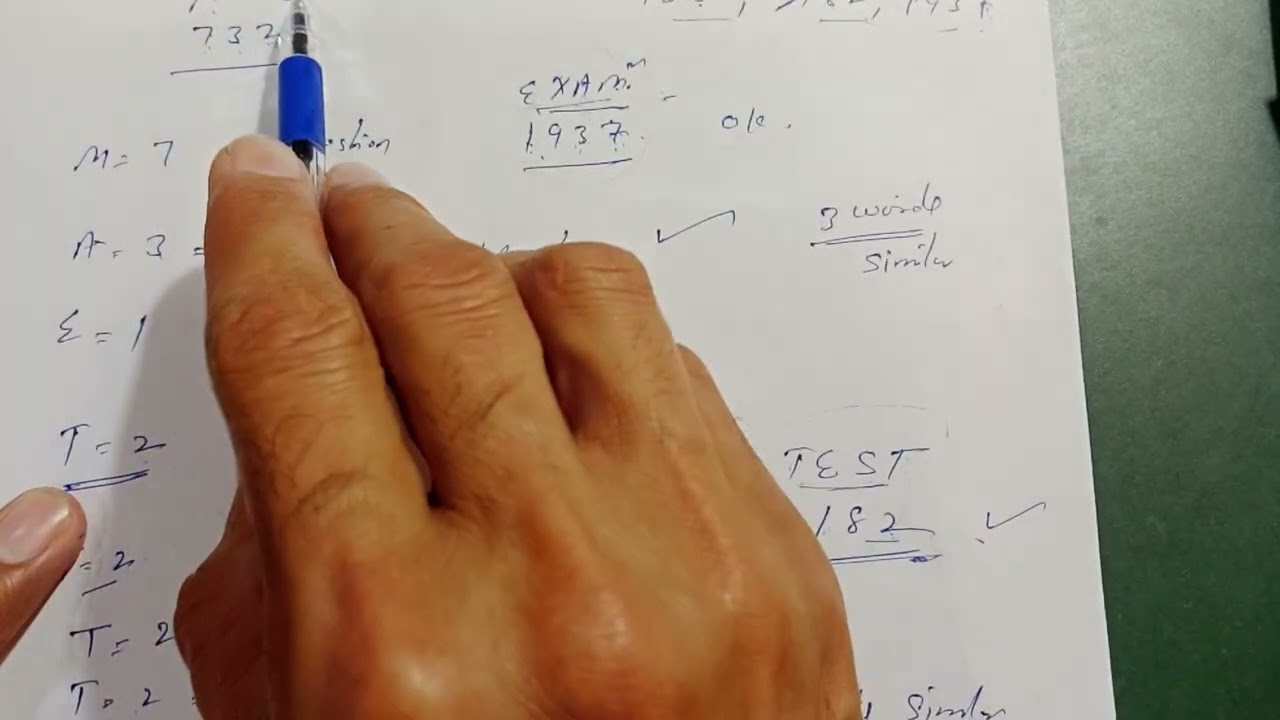 732
EXAM =
1937.
ok.
M = 7
A = 3 =
3 words
similar
E = 1
T = 2
TEST
182
= 2
T = 2
T = 2
similar